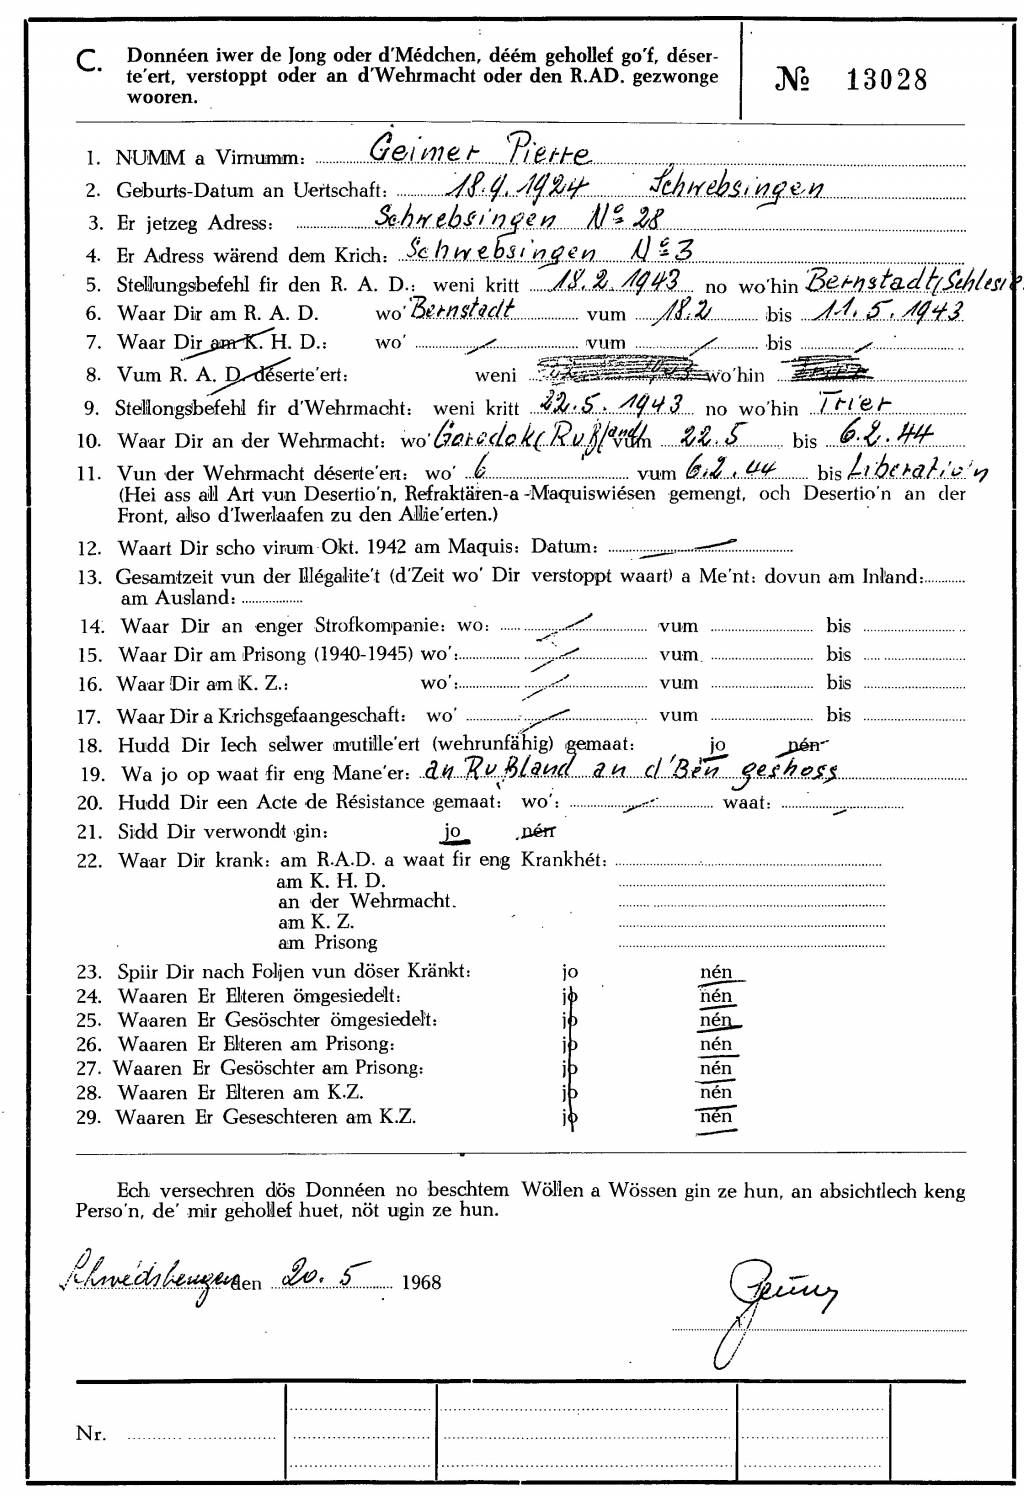 C. Donnéen iwer de Jong oder d'Médchen, déém gehollef go'f, déser-
te'ert, verstoppt oder an d'Wehrmacht oder den R.AD. gezwonge
wooren.
№ 13028
1. NUMM a Virnumm: Geimer Pierre
2. Geburts-Datum an Uertschaft: 18.9.1924 Schwebsingen
3. Er jetzeg Adress: Schwebsingen No 28
4. Er Adress wärend dem Krich: Schwebsingen No 3
5. Stellungsbefehl fir den R. A. D.: weni kritt 18.2.1943 no wo'hin Bernstadt/Schlesie
6. Waar Dir am R. A. D. wo' Bernstadt vum 18.2 bis 11.5.1943
7. Waar Dir am K. H. D.: wo' vum bis
8. Vum R. A. D. déserte'ert: weni wo'hin
9. Stellongsbefehl fir d'Wehrmacht: weni kritt 22.5.1943 no wo'hin Trier
10. Waar Dir an der Wehrmacht: wo' Garodok (Rußland) vum 22.5 bis 6.2.44
11. Vun der Wehrmacht déserte'ert: wo' 6 vum 6.2.44 bis Liberatio'n
(Hei ass all Art vun Desertio'n, Refraktären-a -Maquiswiésen gemengt, och Desertio'n an der
Front, also d'Iwerlaafen zu den Allie'erten.)
12. Waart Dir scho virum Okt. 1942 am Maquis: Datum:
13. Gesamtzeit vun der Illégalite't (d'Zeit wo' Dir verstoppt waart) a Me'nt: dovun am Inland:
am Ausland:
14. Waar Dir an enger Strofkompanie: wo: vum bis
15. Waar Dir am Prisong (1940-1945) wo': vum bis
16. Waar Dir am K. Z.: wo': vum bis
17. Waar Dir a Krichsgefaangeschaft: wo' vum bis
18. Hudd Dir Iech selwer mutille'ert (wehrunfähig) gemaat: jo nén
19. Wa jo op waat fir eng Mane'er: an Rußland an d'Bén geshoss
20. Hudd Dir een Acte de Résistance gemaat: wo': waat:
21. Sidd Dir verwondt gin: jo nén
22. Waar Dir krank: am R.A.D. a waat fir eng Krankhét:
am K. H. D.
an der Wehrmacht.
am K. Z.
am Prisong
23. Spiir Dir nach Foljen vun döser Kränkt: jo nén
24. Waaren Er Elteren ömgesiedelt: jo nén
25. Waaren Er Gesöschter ömgesiedelt: jo nén
26. Waaren Er Elteren am Prisong: jo nén
27. Waaren Er Gesöschter am Prisong: jo nén
28. Waaren Er Elteren am K.Z. jo nén
29. Waaren Er Geseschteren am K.Z. jo nén
Ech versechren dös Donnéen no beschtem Wöllen a Wössen gin ze hun, an absichtlech keng
Perso'n, de' mir gehollef huet, nöt ugin ze hun.
den 20.5 1968
Nr.